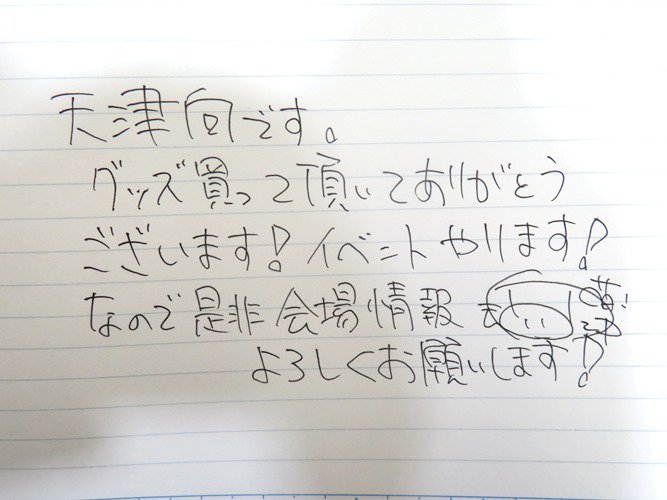 天津向です。
グッズ買って頂いてありがとう
ございます!イベントやります!
なので是非会場情報も
よろしくお願いします!